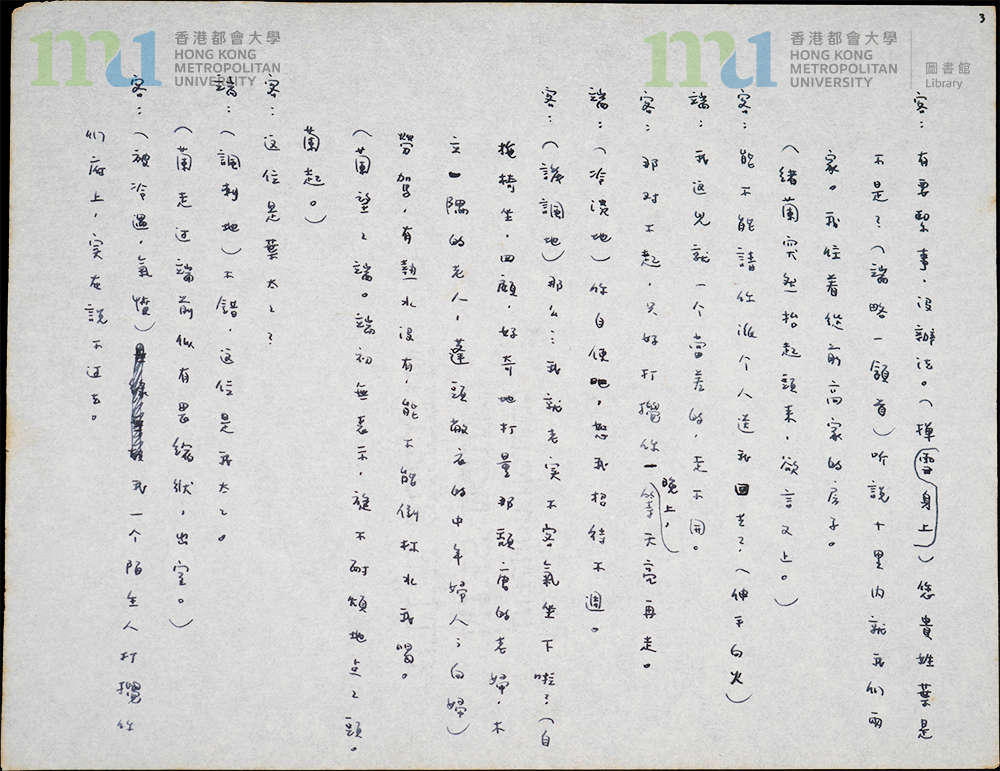 3
香港都會大學
HONG KONG
METROPOLITAN
UNIVERSITY
香港都會大學
HONG KONG
METROPOLITAN
UNIVERSITY
圖書館
Library
客：有要緊事，沒辦法。（撣身上雪）您貴姓葉是
不是？（端略一頷首）听說十里內就我们兩
家。我住着從前高家的房子。
（緒蘭突然抬起頭來，欲言又上。）
客：能不能請你派个人送我回去？（伸手向火）
端：我这兒就一个當差的，走不開。
客：那对不起，只好打攪你一晚上，等天亮再走。
端：（冷漠地）你自便吧，恕我招待不週。
客：（譏諷地）那么：我就老实不客氣坐下啦？（自
拖椅坐，四顧，好奇地打量那頹唐的老婦，木
立一隅的老人，蓬頭敝衣的中年婦人；向婦）
勞駕，有熱水沒有，能不能倒杯水我喝。
（蘭望望端。端初無表示，旋不耐煩地点点頭。
蘭起。）
客：这位是葉太太？
端：（諷刺地）不錯，这位是我太太。
（蘭走过端前似有畏縮狀，出室。）
客：（被冷遇，氣憤）我一个陌生人打攪你
们府上，实在說不过去。